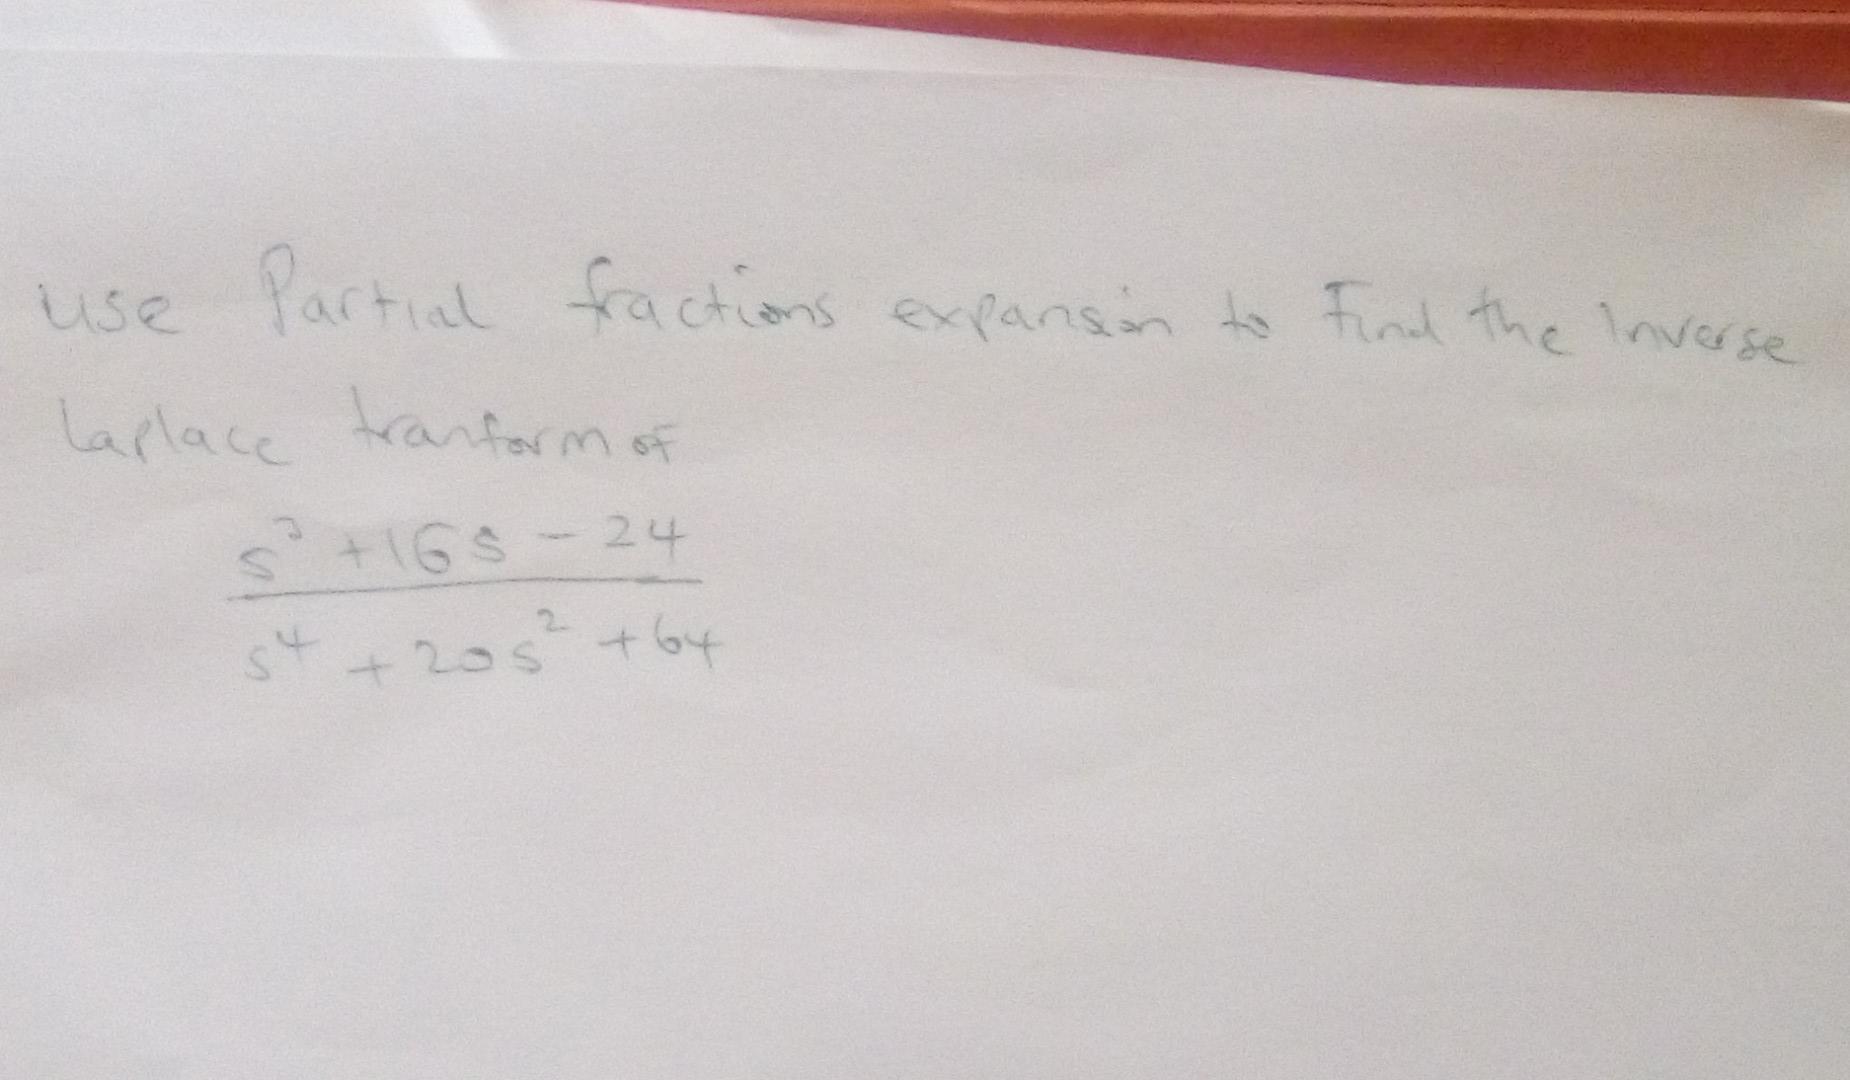 use Partial fractions expansion to Find the Inverse
Laplace tranform of
s³ + 16s - 24
s⁴ + 20s² + 64